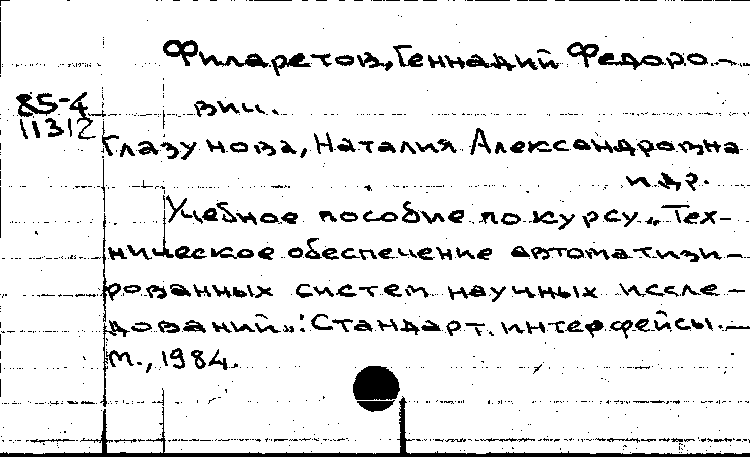 Филаретов, Геннадий Федоро-
85-4
вич.
11312
Глазунова, Наталия Александровна
и др.
Учебное пособие по курсу „Тех-
ническое обеспечение автоматизи-
рованных систем научных иссле-
дований": Стандарт. интерфейсы.—
М., 1984.